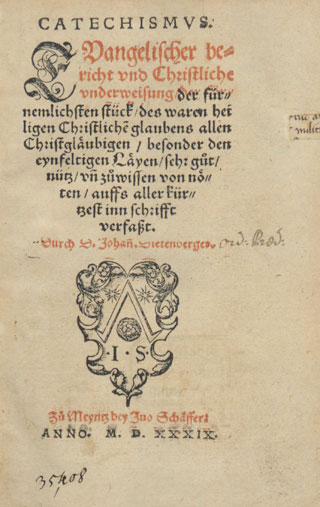 CATECHISMVS.
EVangelischer be-
richt vnd Christliche
vnderweisung/ der für-
nemlichsten stück/ des waren hei
ligen Christlichē glaubens allen
Christgläubigen / besonder den
eynfeltigen Läyen/ sehr gůt/
nütz/ vñ zůwissen von nö-
ten/ auffs aller kür-
tzest inn schrifft
verfaßt.
Durch D. Johañ. Dietenberger. ord. Præd.
·I·S·
Zů Meyntz bey Iuo Schöffer/
ANNO. M. D. XXXIX.
35408